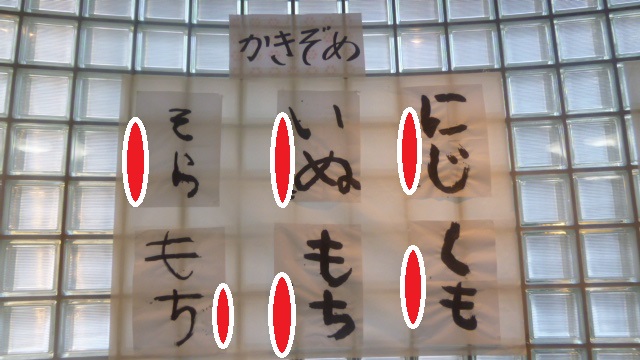 かきぞめ
にじ
いぬ
そら
くも
もち
もち